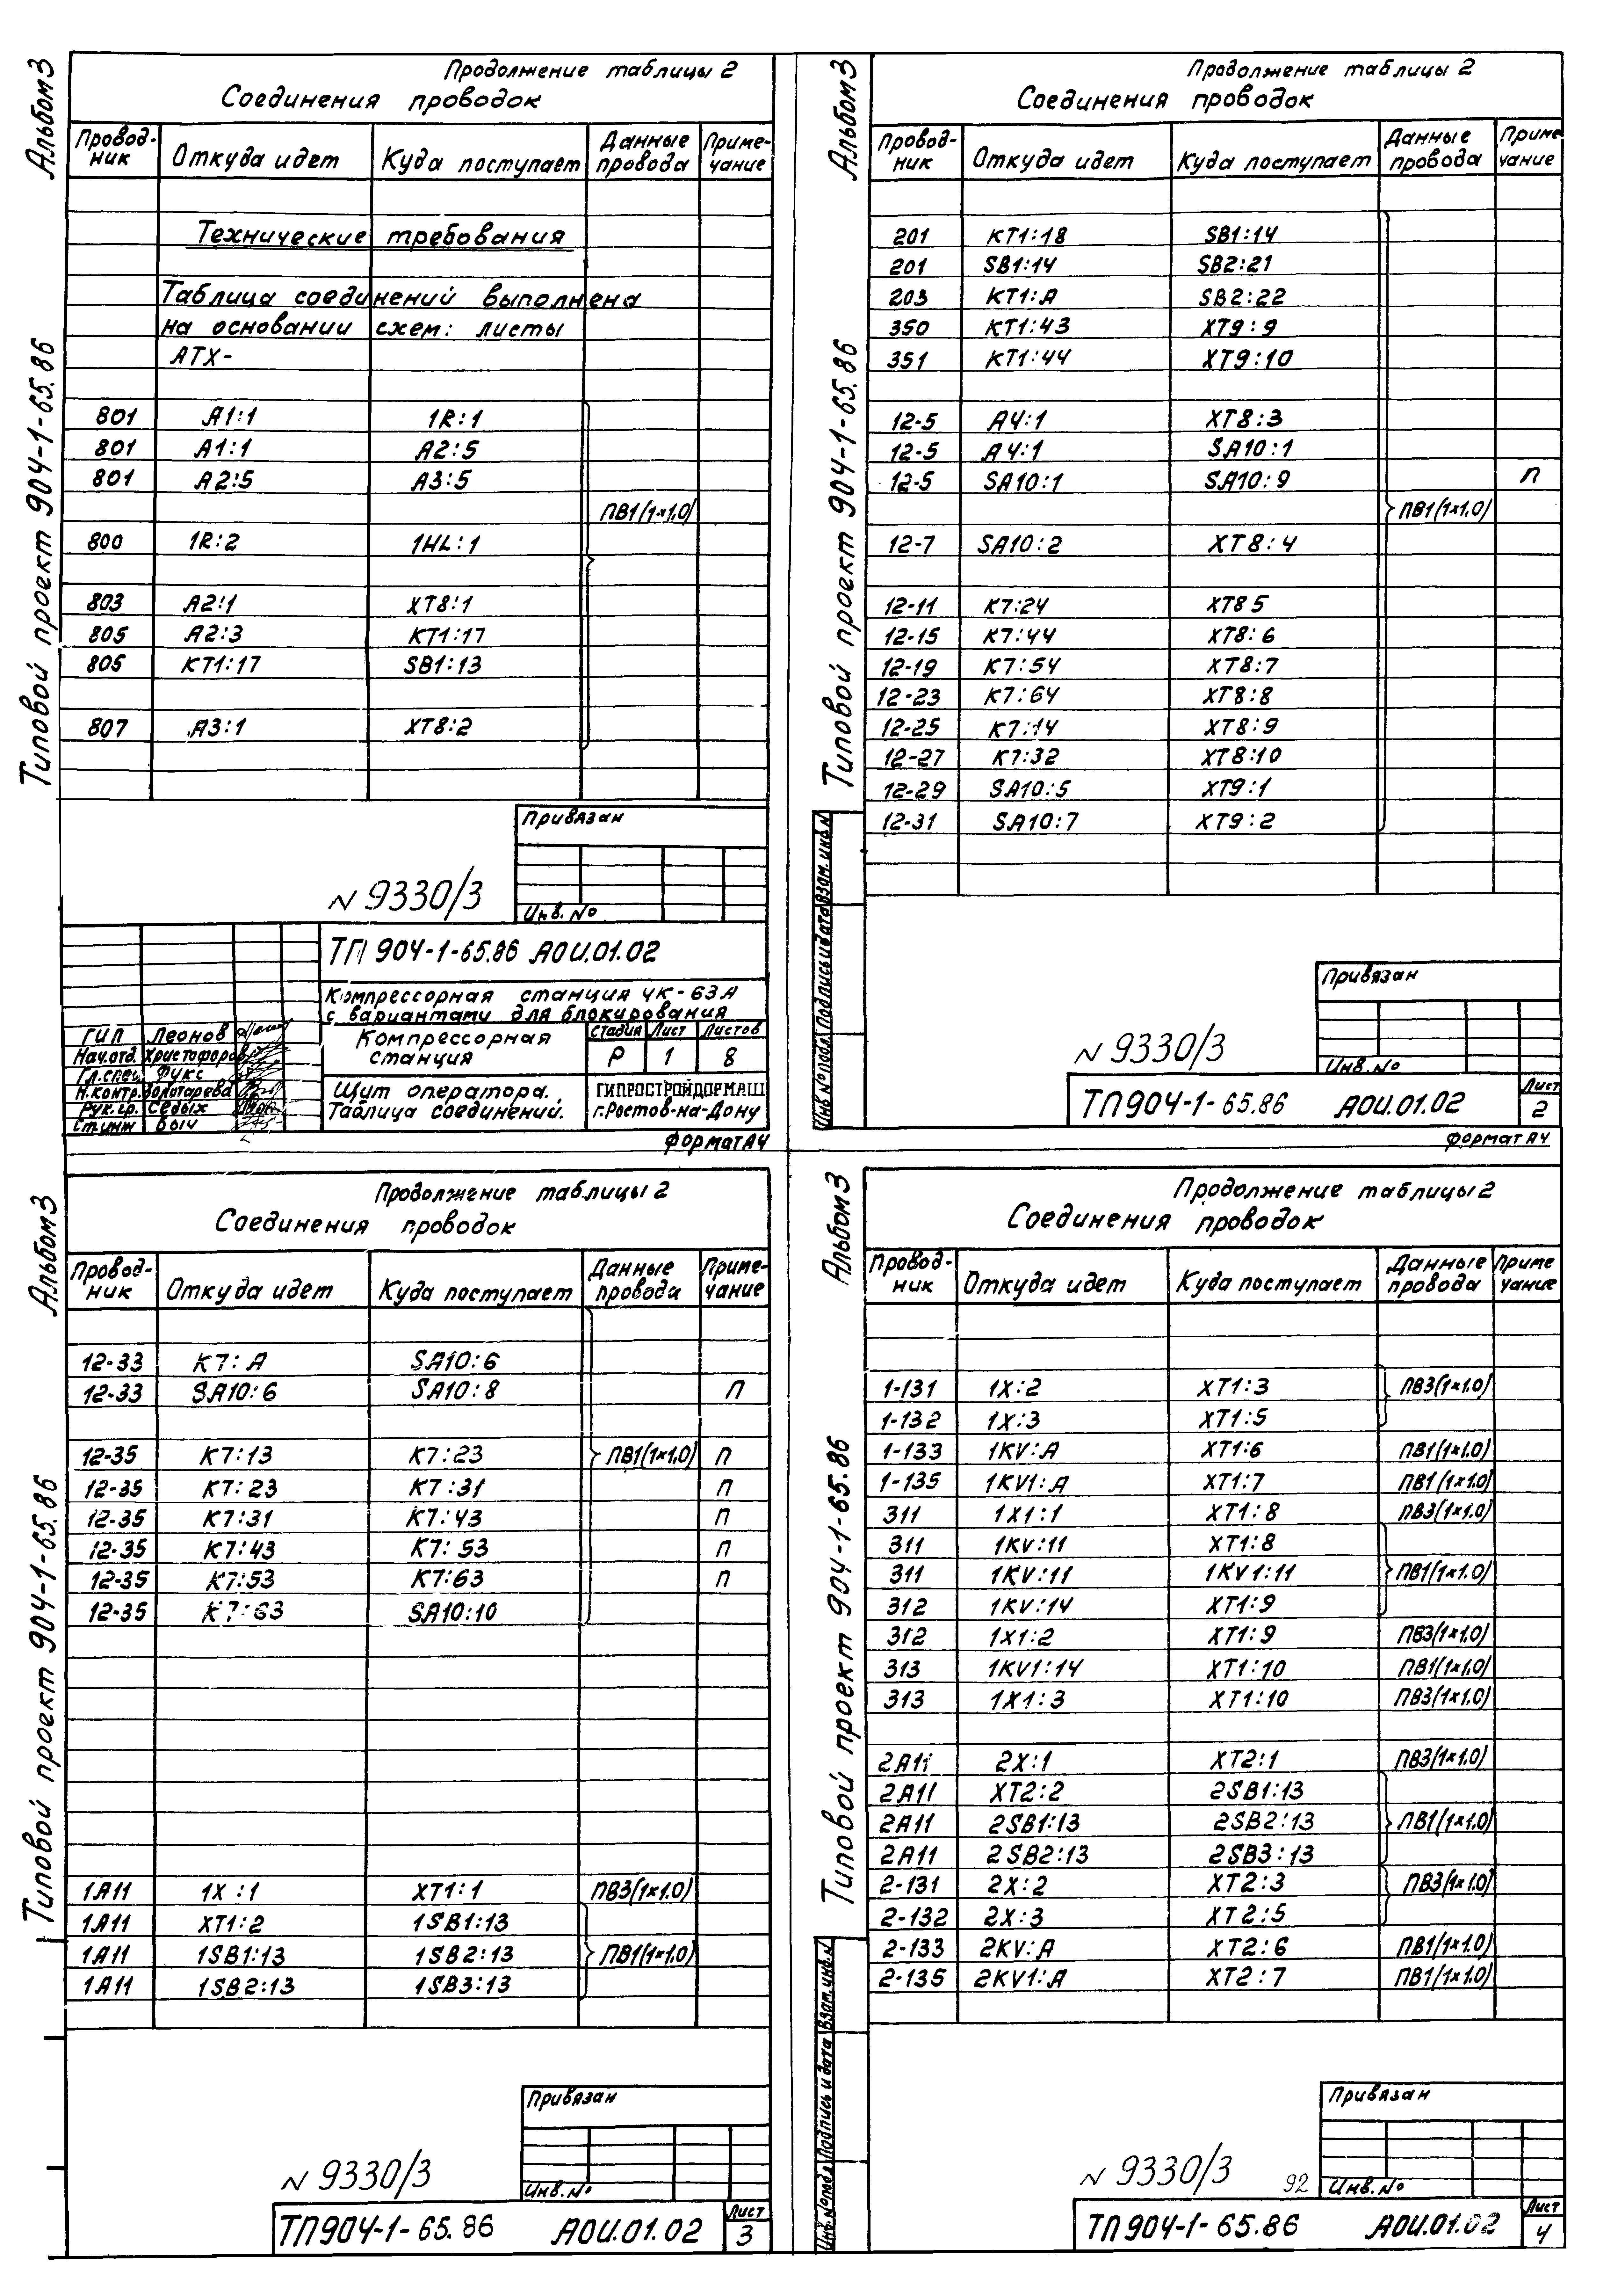 Альбом 3
Типовой проект 904-1-65.86
Продолжение таблицы 2
Соединения проводок
Провод-ник Откуда идет Куда поступает Данные провода Приме-чание
Технические требования
Таблица соединений выполнена
на основании схем: листы
АТХ-
801 А1:1 1R:1
801 А1:1 А2:5
801 А2:5 А3:5
ПВ1(1×1,0)
800 1R:2 1HL:1
803 А2:1 XT8:1
805 А2:3 КТ1:17
805 КТ1:17 SB1:13
807 А3:1 XT8:2
Привязан
Инв. №
N 9330/3
ТП 904-1-65.86 АОИ.01.02
Компрессорная станция 4К-63А
с вариантами для блокирования
ГИП Леонов
Нач.отд. Христофоров
Гл.спец. Фукс
Н.контр. Золотарева
Рук.гр. Седых
Ст.инж Выч
Компрессорная
станция
Стадия Лист Листов
Р 1 8
Щит оператора.
Таблица соединений.
ГИПРОСТРОЙДОРМАШ
г.Ростов-на-Дону
Формат А4
Альбом 3
Типовой проект 904-1-65.86
Продолжение таблицы 2
Соединения проводок
Провод-ник Откуда идет Куда поступает Данные провода Приме чание
201 КТ1:18 SB1:14
201 SB1:14 SB2:21
203 КТ1:А SB2:22
350 КТ1:43 XT9:9
351 КТ1:44 XT9:10
12-5 А4:1 XT8:3
12-5 А4:1 SA10:1
12-5 SA10:1 SA10:9 П
ПВ1(1×1,0)
12-7 SA10:2 XT8:4
12-11 К7:24 XT8 5
12-15 К7:44 XT8:6
12-19 К7:54 XT8:7
12-23 К7:64 XT8:8
12-25 К7:14 XT8:9
12-27 К7:32 XT8:10
12-29 SA10:5 XT9:1
12-31 SA10:7 XT9:2
Инв № подл. Подпись и дата Взам. инв. N
Привязан
Инв. №
N 9330/3
ТП 904-1-65.86 АОИ.01.02
Лист
2
Формат А4
Альбом 3
Типовой проект 904-1-65.86
Продолжение таблицы 2
Соединения проводок
Провод-ник Откуда идет Куда поступает Данные провода Приме-чание
12-33 К7:А SA10:6
12-33 SA10:6 SA10:8 П
12-35 К7:13 К7:23 ПВ1(1×1.0) П
12-35 К7:23 К7:31 П
12-35 К7:31 К7:43 П
12-35 К7:43 К7:53 П
12-35 К7:53 К7:63 П
12-35 К7:63 SA10:10
1А11 1X:1 XT1:1 ПВ3(1×1.0)
1А11 XT1:2 1SB1:13
1А11 1SB1:13 1SB2:13 ПВ1(1×1.0)
1А11 1SB2:13 1SB3:13
Привязан
Инв. №
N 9330/3
ТП 904-1-65.86 АОИ.01.02
Лист
3
Альбом 3
Типовой проект 904-1-65.86
Продолжение таблицы 2
Соединения проводок
Провод-ник Откуда идет Куда поступает Данные провода Приме чание
1-131 1X:2 XT1:3 ПВ3(1×1.0)
1-132 1X:3 XT1:5
1-133 1KV:А XT1:6 ПВ1(1×1.0)
1-135 1KV1:А XT1:7 ПВ1(1×1.0)
311 1X1:1 XT1:8 ПВ3(1×1.0)
311 1KV:11 XT1:8
311 1KV:11 1KV1:11 ПВ1(1×1.0)
312 1KV:14 XT1:9
312 1X1:2 XT1:9 ПВ3(1×1.0)
313 1KV1:14 XT1:10 ПВ1(1×1.0)
313 1X1:3 XT1:10 ПВ3(1×1.0)
2А11 2X:1 XT2:1 ПВ3(1×1.0)
2А11 XT2:2 2SB1:13
2А11 2SB1:13 2SB2:13 ПВ1(1×1.0)
2А11 2SB2:13 2SB3:13
2-131 2X:2 XT2:3 ПВ3(1×1.0)
2-132 2X:3 XT2:5
2-133 2KV:А XT2:6 ПВ1(1×1.0)
2-135 2KV1:А XT2:7 ПВ1(1×1.0)
Инв. № подл. Подпись и дата Взам. инв. N
Привязан
Инв. №
N 9330/3 92
ТП 904-1-65.86 АОИ.01.02
Лист
4